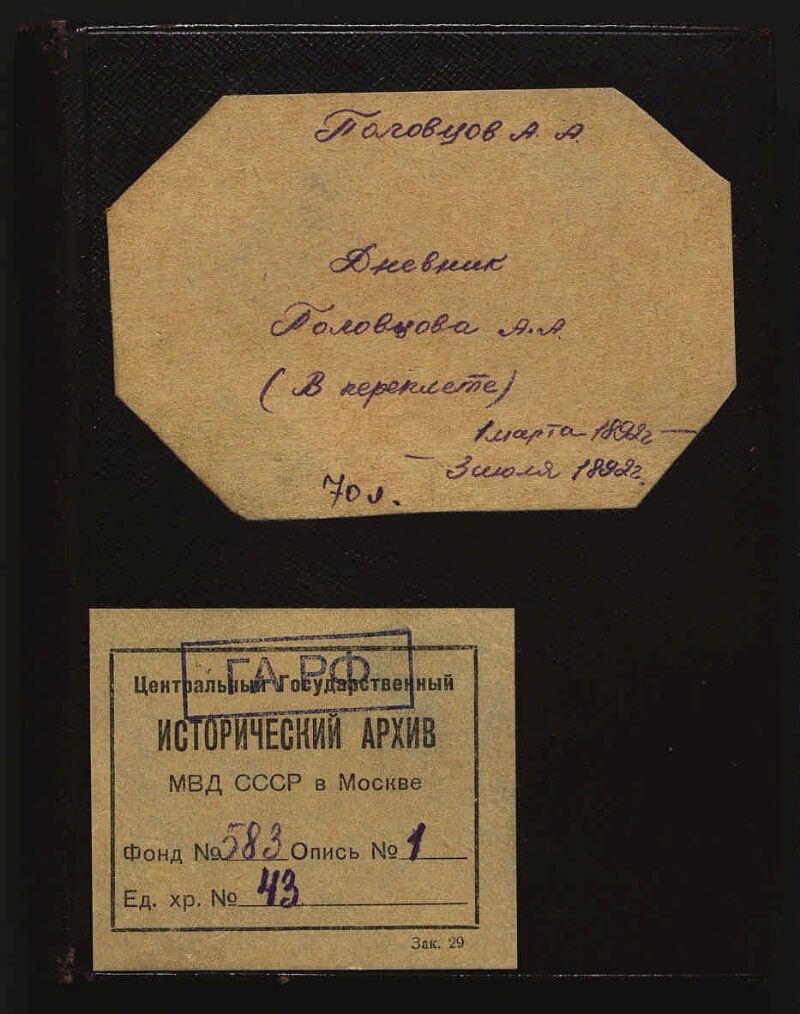 Половцов А. А.
Дневник
Половцова А.А.
(В переплете)
1 марта 1892г —
— 3 июля 1892г.
70 л.
ГА РФ
Центральный Государственный
ИСТОРИЧЕСКИЙ АРХИВ
МВД СССР в Москве
Фонд № 583 Опись № 1
Ед. хр. № 43
Зак. 29